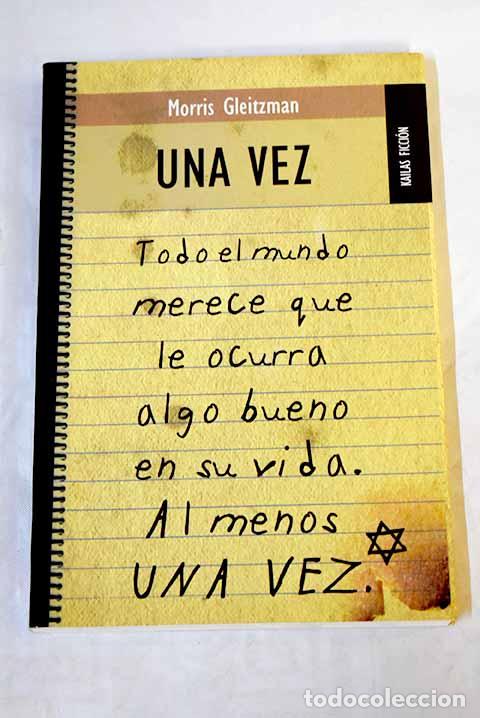 Morris Gleitzman
UNA VEZ
KAILAS FICCIÓN
Todo el mundo
merece que
le ocurra
algo bueno
en su vida.
Al menos
UNA VEZ.
todocoleccion